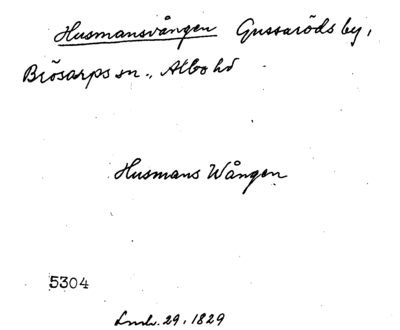 Husmansvången Gussaröds by,
Brösarps sn., Albo hd
Husmans Wången
5304
Lmh. 29, 1829